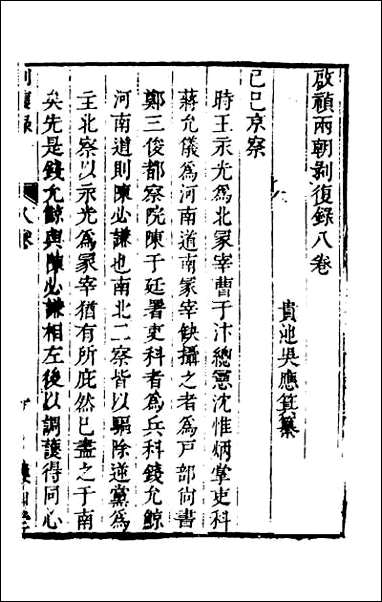 啟禎兩朝剝復錄八卷
貴池吳應箕纂
己巳京察
時王永光爲北冢宰曹于汴總憲沈惟炳掌吏科
蔣允儀爲河南道南冢宰缺攝之者爲戶部尙書
鄭三俊都察院陳于廷署吏科者爲兵科錢允鯨
河南道則陳必謙也南北二察皆以驅除逆黨爲
主北察以永光爲冢宰猶有所庇然已盡之于南
矣先是錢允鯨與陳必謙相左後以調護得同心